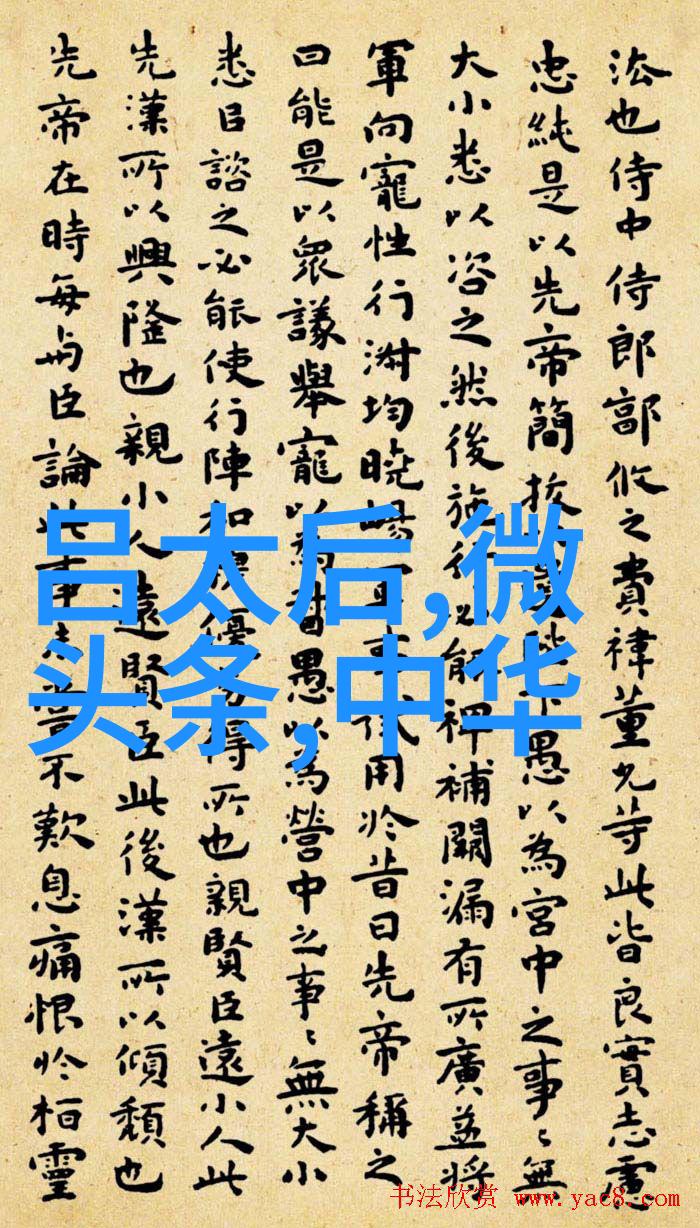 法也侍中侍郎郭攸之費禕董允等此皆良實志慮
忠純是以先帝簡拔遺陛下愚以為宮中之事〻無
大小悉以咨之然後施行必能裨補闕漏有所廣益將
軍向寵性行淋均曉暢軍事試用於昔日先帝稱之
曰能是以眾議舉寵以為督愚以為營中之事〻無大小
悉以諮之必能使行陣和穆優劣得所也親賢臣遠小人此
先漢所以興隆也親小人遠賢臣此後漢所以傾頹也
先帝在時每與臣論此事未嘗不歎息痛恨於桓靈
吕太后,微
头条,中华
书法欣赏 www.yac8.com